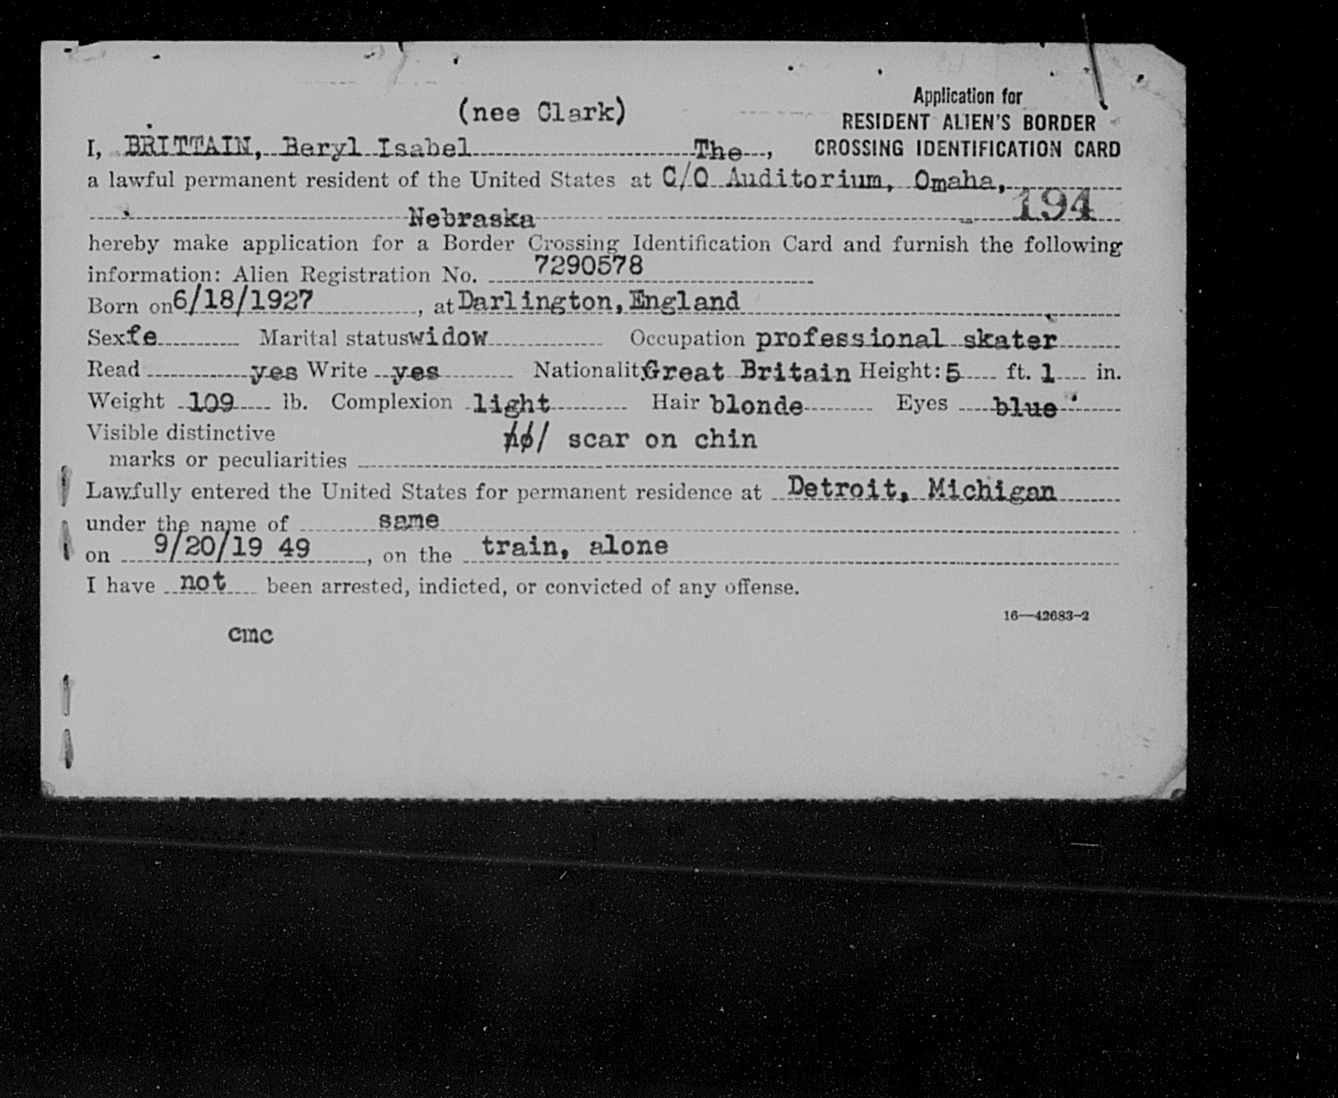 Application for
(nee Clark)
RESIDENT ALIEN'S BORDER
I, BRITTAIN, Beryl Isabel The, CROSSING IDENTIFICATION CARD
a lawful permanent resident of the United States at C/O Auditorium, Omaha,
Nebraska 194
hereby make application for a Border Crossing Identification Card and furnish the following
information: Alien Registration No. 7290578
Born on 6/18/1927, at Darlington, England
Sex fe Marital status widow Occupation professional skater
Read yes Write yes Nationality Great Britain Height: 5 ft. 1 in.
Weight 109 lb. Complexion light Hair blonde Eyes blue
Visible distinctive
marks or peculiarities scar on chin
Lawfully entered the United States for permanent residence at Detroit, Michigan
under the name of same
on 9/20/19 49, on the train, alone
I have not been arrested, indicted, or convicted of any offense.
16—42683-2
cmc